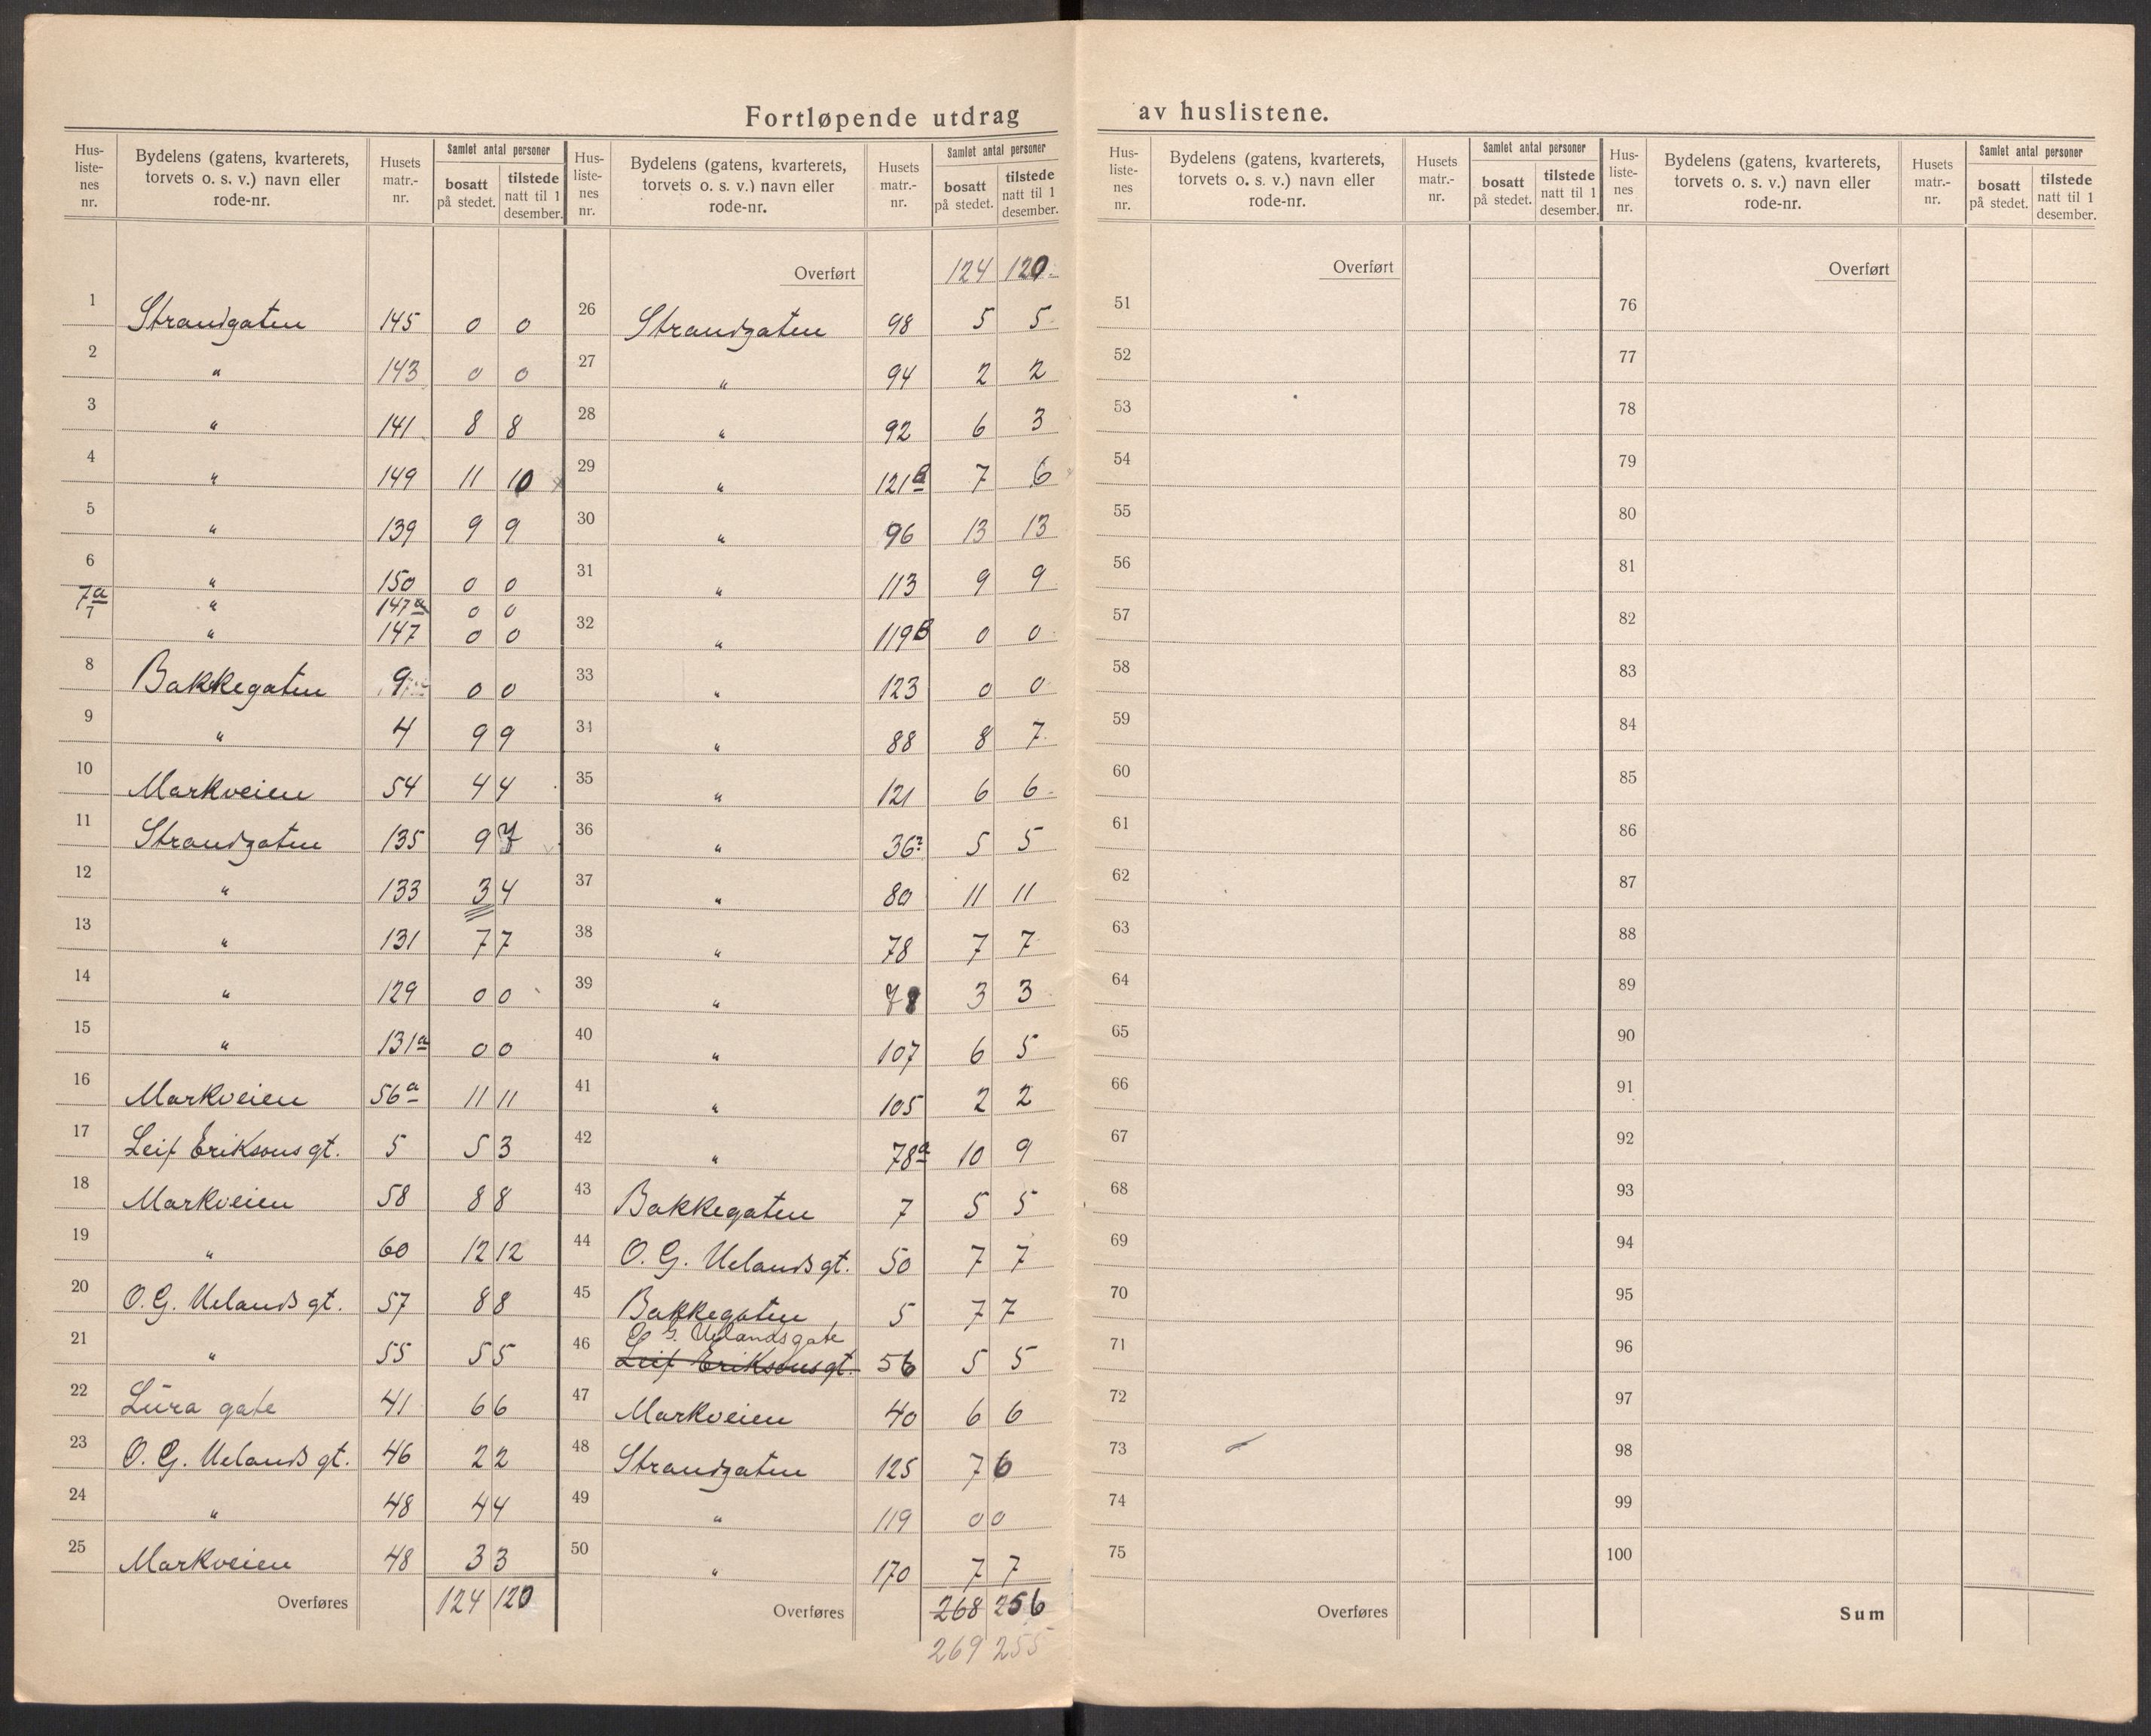 Fortløpende utdrag av huslistene.
Hus-listenes nr. | Bydelens (gatens, kvarterets, torvets o. s. v.) navn eller rode-nr. | Husets matr.-nr. | Samlet antal personer bosatt på stedet. | tilstede natt til 1 desember.
1 Strandgaten 145 0 0
2 " 143 0 0
3 " 141 8 8
4 " 149 11 10
5 " 139 9 9
6 " 150 0 0
7a " 147a 0 0
7 " 147 0 0
8 Bakkegaten 9 0 0
9 " 4 9 9
10 Markveien 54 4 4
11 Strandgaten 135 9 7
12 " 133 3 4
13 " 131 7 7
14 " 129 0 0
15 " 131a 0 0
16 Markveien 56a 11 11
17 Leif Eriksons gt. 5 5 3
18 Markveien 58 8 8
19 " 60 12 12
20 O. G. Uelands gt. 57 8 8
21 " 55 5 5
22 Lura gate 41 6 6
23 O. G. Uelands gt. 46 2 2
24 " 48 4 4
25 Markveien 48 3 3
Overføres 124 120
Hus-listenes nr. | Bydelens (gatens, kvarterets, torvets o. s. v.) navn eller rode-nr. | Husets matr.-nr. | Samlet antal personer bosatt på stedet. | tilstede natt til 1 desember.
Overført 124 120
26 Strandgaten 98 5 5
27 " 94 2 2
28 " 92 6 3
29 " 121B 7 6
30 " 96 13 13
31 " 113 9 9
32 " 119B 0 0
33 " 123 0 0
34 " 88 8 7
35 " 121 6 6
36 " 36? 5 5
37 " 80 11 11
38 " 78 7 7
39 " 78 3 3
40 " 107 6 5
41 " 105 2 2
42 " 78a 10 9
43 Bakkegaten 7 5 5
44 O. G. Uelands gt. 50 7 7
45 Bakkegaten 5 7 7
O. G. Uelandsgate
46 Leif Eriksons gt. 56 5 5
47 Markveien 40 6 6
48 Strandgaten 125 7 6
49 " 119 0 0
50 " 170 7 7
Overføres 268 256
269 255
Hus-listenes nr. | Bydelens (gatens, kvarterets, torvets o. s. v.) navn eller rode-nr. | Husets matr.-nr. | Samlet antal personer bosatt på stedet. | tilstede natt til 1 desember.
Overført
51
52
53
54
55
56
57
58
59
60
61
62
63
64
65
66
67
68
69
70
71
72
73
74
75
Overføres
Hus-listenes nr. | Bydelens (gatens, kvarterets, torvets o. s. v.) navn eller rode-nr. | Husets matr.-nr. | Samlet antal personer bosatt på stedet. | tilstede natt til 1 desember.
Overført
76
77
78
79
80
81
82
83
84
85
86
87
88
89
90
91
92
93
94
95
96
97
98
99
100
Sum